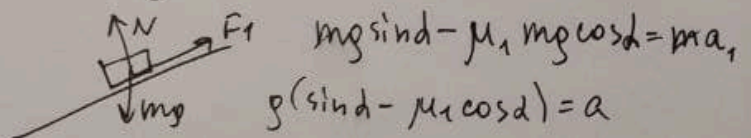 N F1 mg sin α − μ₁ mg cos α = ma₁
mg g(sin α − μ₁ cos α) = a